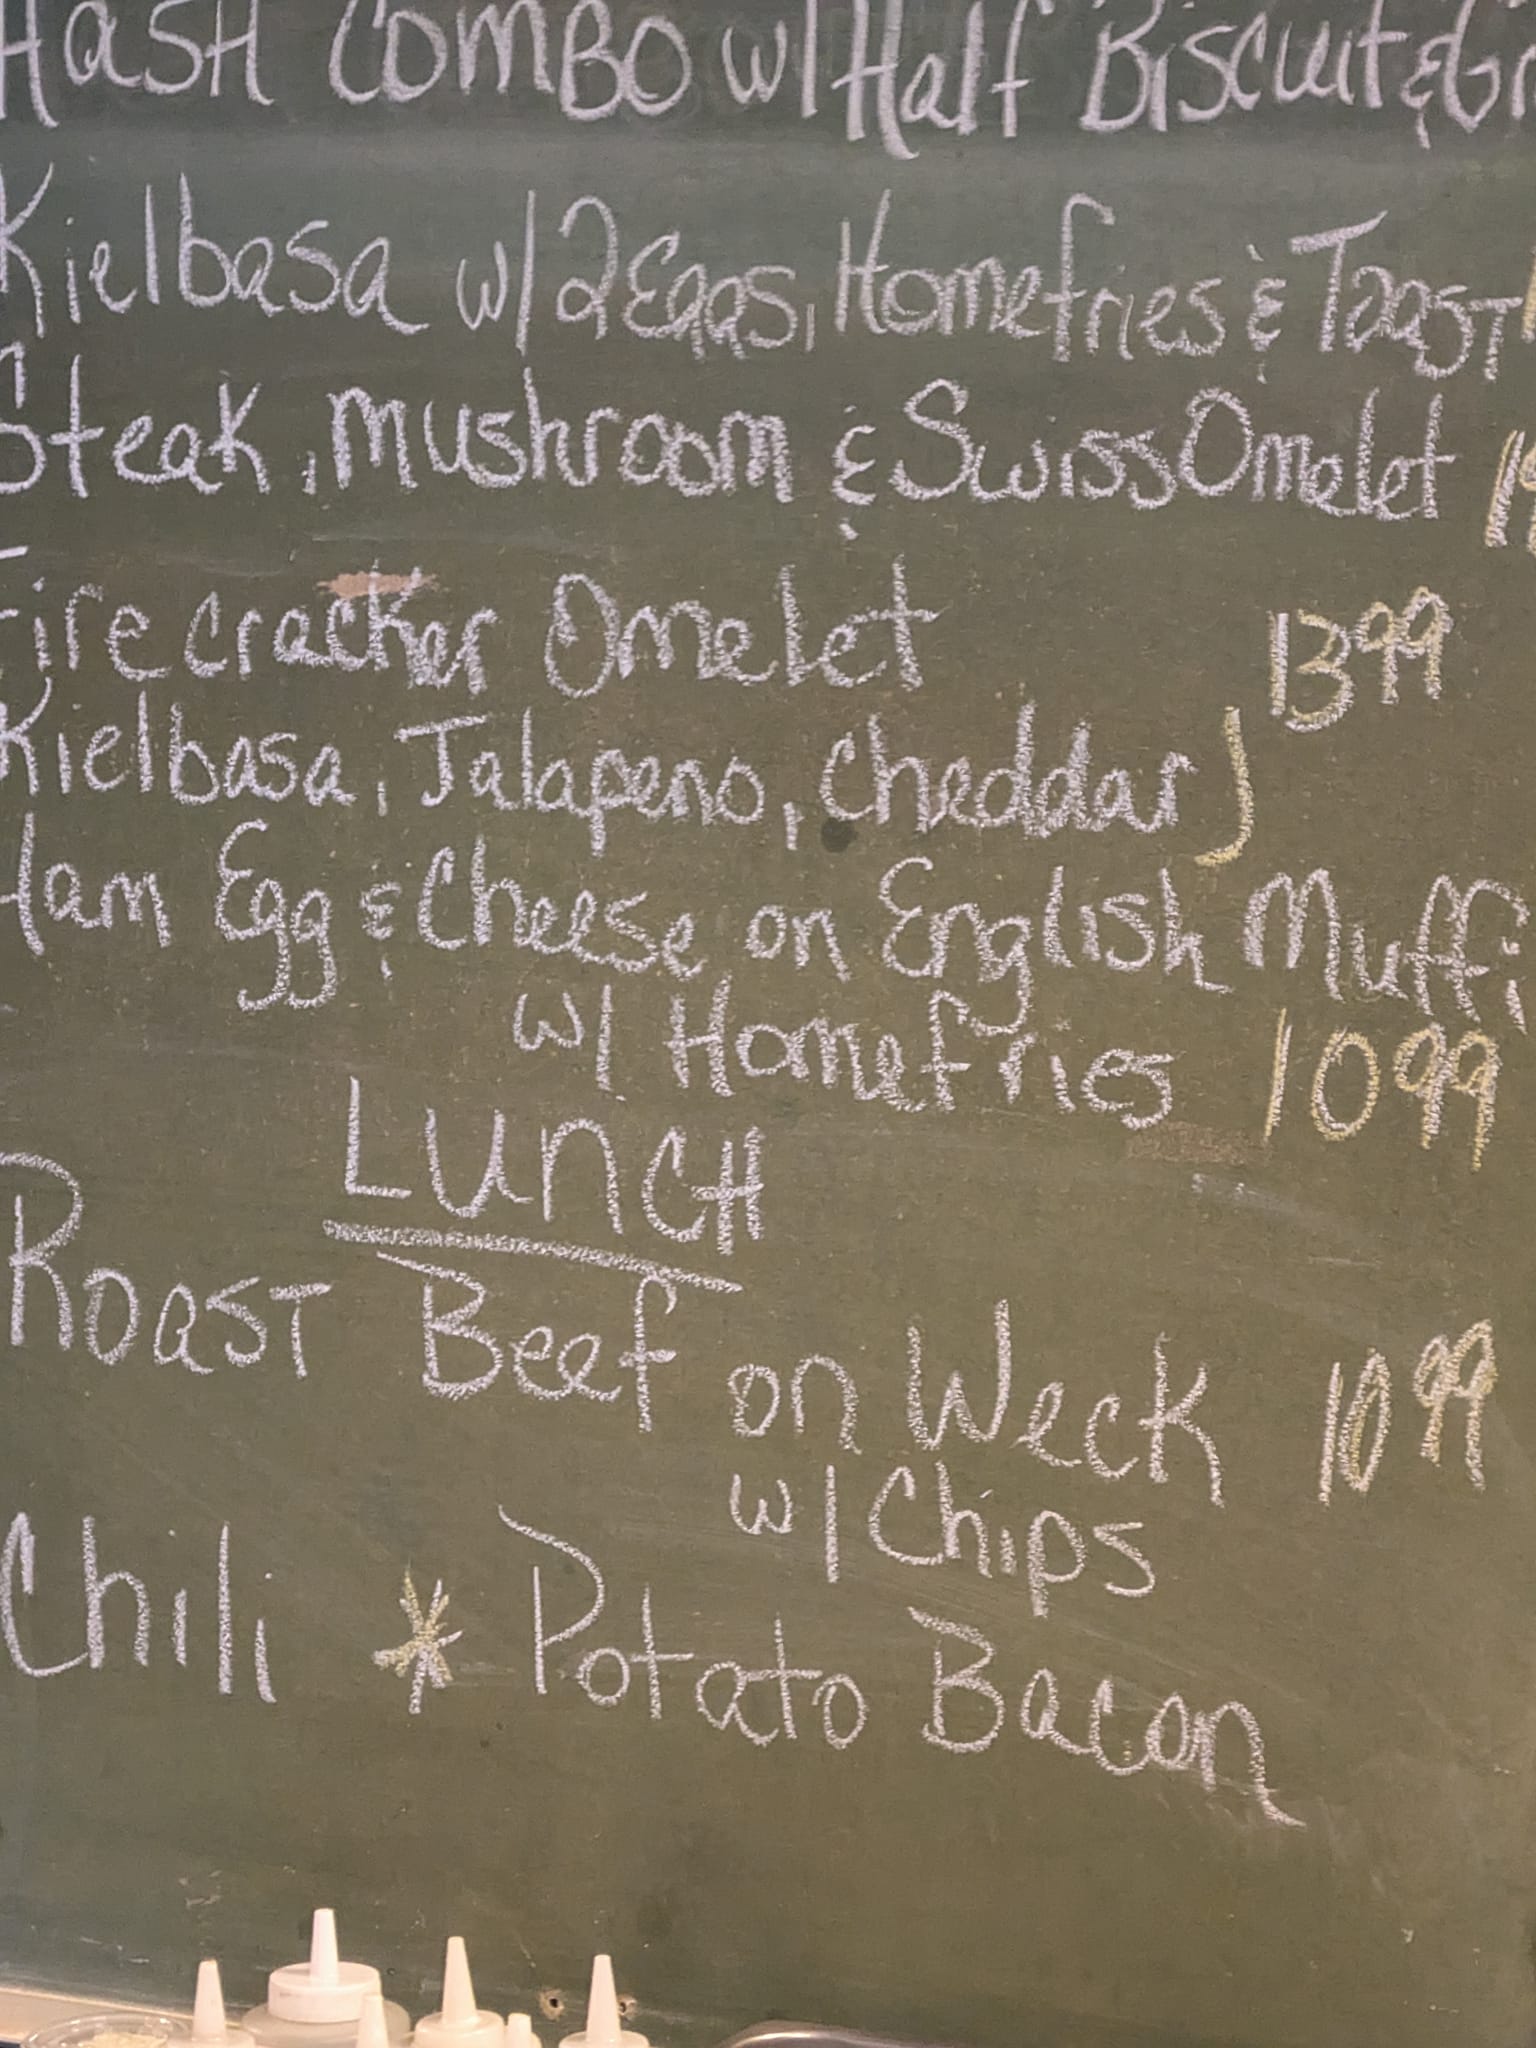 Hash Combo w/ Half Biscuit & Gr
Kielbasa w/ 2 Eggs, Homefries & Toast 1
Steak, Mushroom & Swiss Omelet 1
Firecracker Omelet 13 99
Kielbasa, Jalapeno, Cheddar)
Ham Egg & Cheese on English Muffi
w/ Homefries 10 99
Lunch
Roast Beef on Weck 10 99
w/ Chips
Chili * Potato Bacon